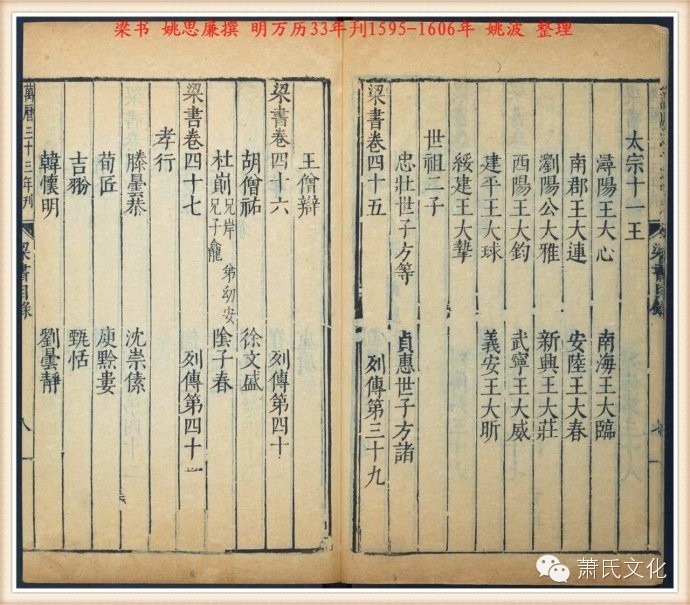 梁书 姚思廉撰 明万历33年刊1595-1606年 姚波 整理
太宗十一王
潯陽王大心 南海王大臨
南郡王大連 安陸王大春
瀏陽公大雅 新興王大莊
西陽王大鈞 武寧王大威
建平王大球 義安王大昕
綏建王大摯
世祖二子
忠壯世子方等 貞惠世子方諸
梁書卷四十五 列傳第三十九
王僧辯
梁書卷四十六 列傳第四十
胡僧祐 徐文盛
杜崱 兄岸 弟幼安 兄子龕 陰子春
梁書卷四十七 列傳第四十一
孝行
滕曇恭 沈崇傃
荀匠 庾黔婁
吉翂 甄恬
韓懷明 劉曇靜
萬曆三十三年刊 梁書目錄 八
萧氏文化